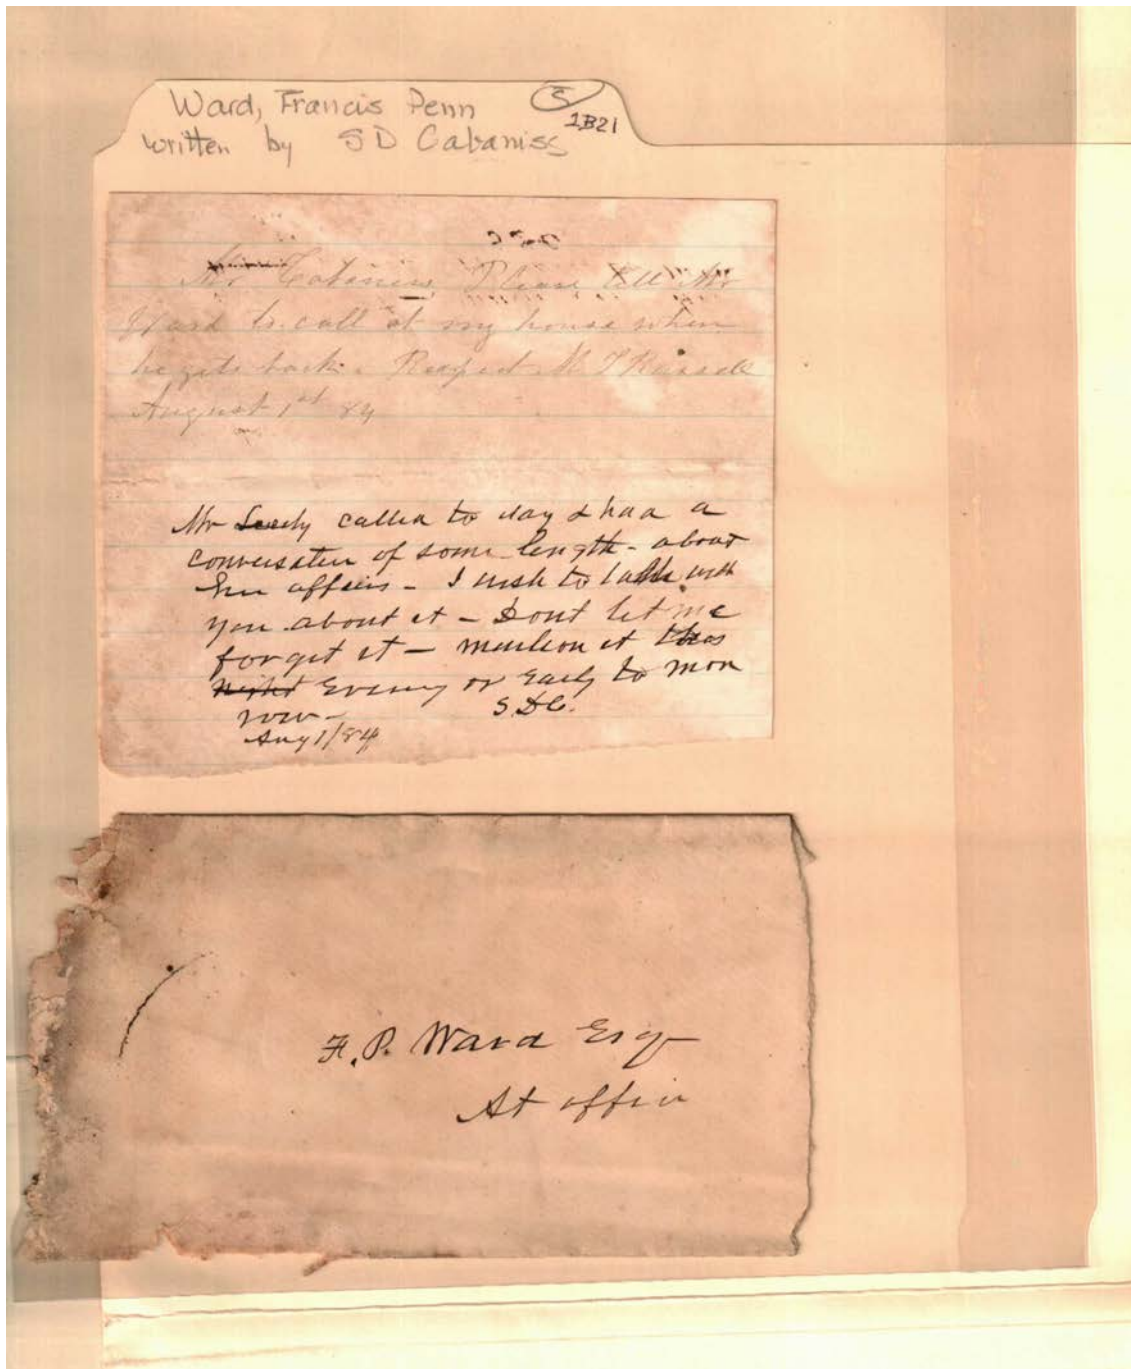 Ward, Francis Penn S
1B21
written by SD Cabaniss
Mr Cabaniss, Please tell Mr
Ward to call at my house when
he gets back. Respect M T Russell
August 1st 84
Mr called to day & had a
conversation of some length - about
affairs - I wish to talk with
you about it - Dont let me
forget it - mention it this
Night Evening or Early to mor
row -
S.D.C.
Aug 1/84
F. P. Ward Esq
At office